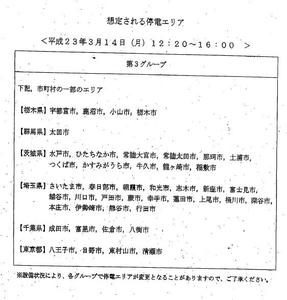 想定される停電エリア
<平成23年3月14日(月)12:20~16:00 >
第3グループ
下記、市町村の一部のエリア
【栃木県】宇都宮市、鹿沼市、小山市、栃木市
【群馬県】太田市
【茨城県】水戸市、ひたちなか市、常陸大宮市、常陸太田市、那珂市、土浦市、
つくば市、かすみがうら市、牛久市、龍ヶ崎市、稲敷市
【埼玉県】さいたま市、春日部市、朝霞市、和光市、志木市、新座市、富士見市、
越谷市、川口市、戸田市、蕨市、幸手市、蓮田市、上尾市、桶川市、深谷市、
本庄市、伊勢崎市、熊谷市、行田市
【千葉県】成田市、富里市、佐倉市、八街市
【東京都】八王子市、日野市、東村山市、清瀬市
※設備状況により、各グループで停電エリアが変更となることがありますので、ご了承ください。